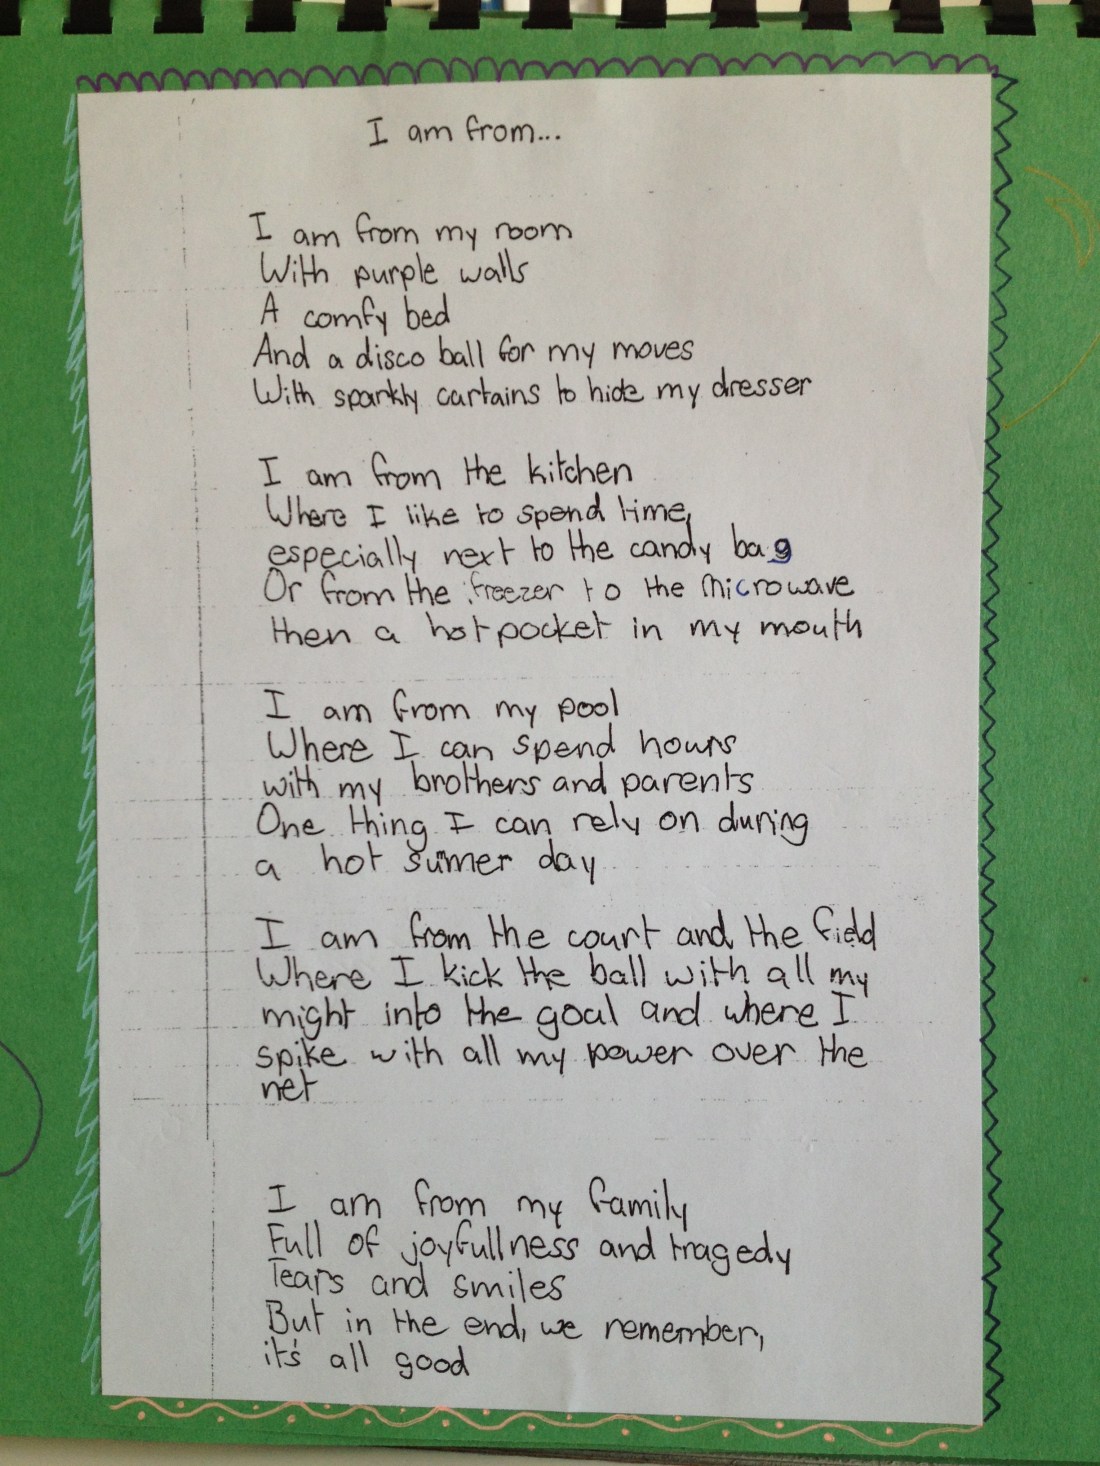 I am from...
I am from my room
With purple walls
A comfy bed
And a disco ball for my moves
With sparkly cartains to hide my dresser
I am from the kitchen
Where I like to spend time,
especially next to the candy bag
Or from the freezer to the Microwave
then a hot pocket in my mouth
I am from my pool
Where I can spend hours
with my brothers and parents
One thing I can rely on during
a hot sumer day
I am from the court and the field
Where I kick the ball with all my
might into the goal and where I
spike with all my power over the
net
I am from my family
Full of joyfullness and tragedy
Tears and smiles
But in the end, we remember,
it's all good